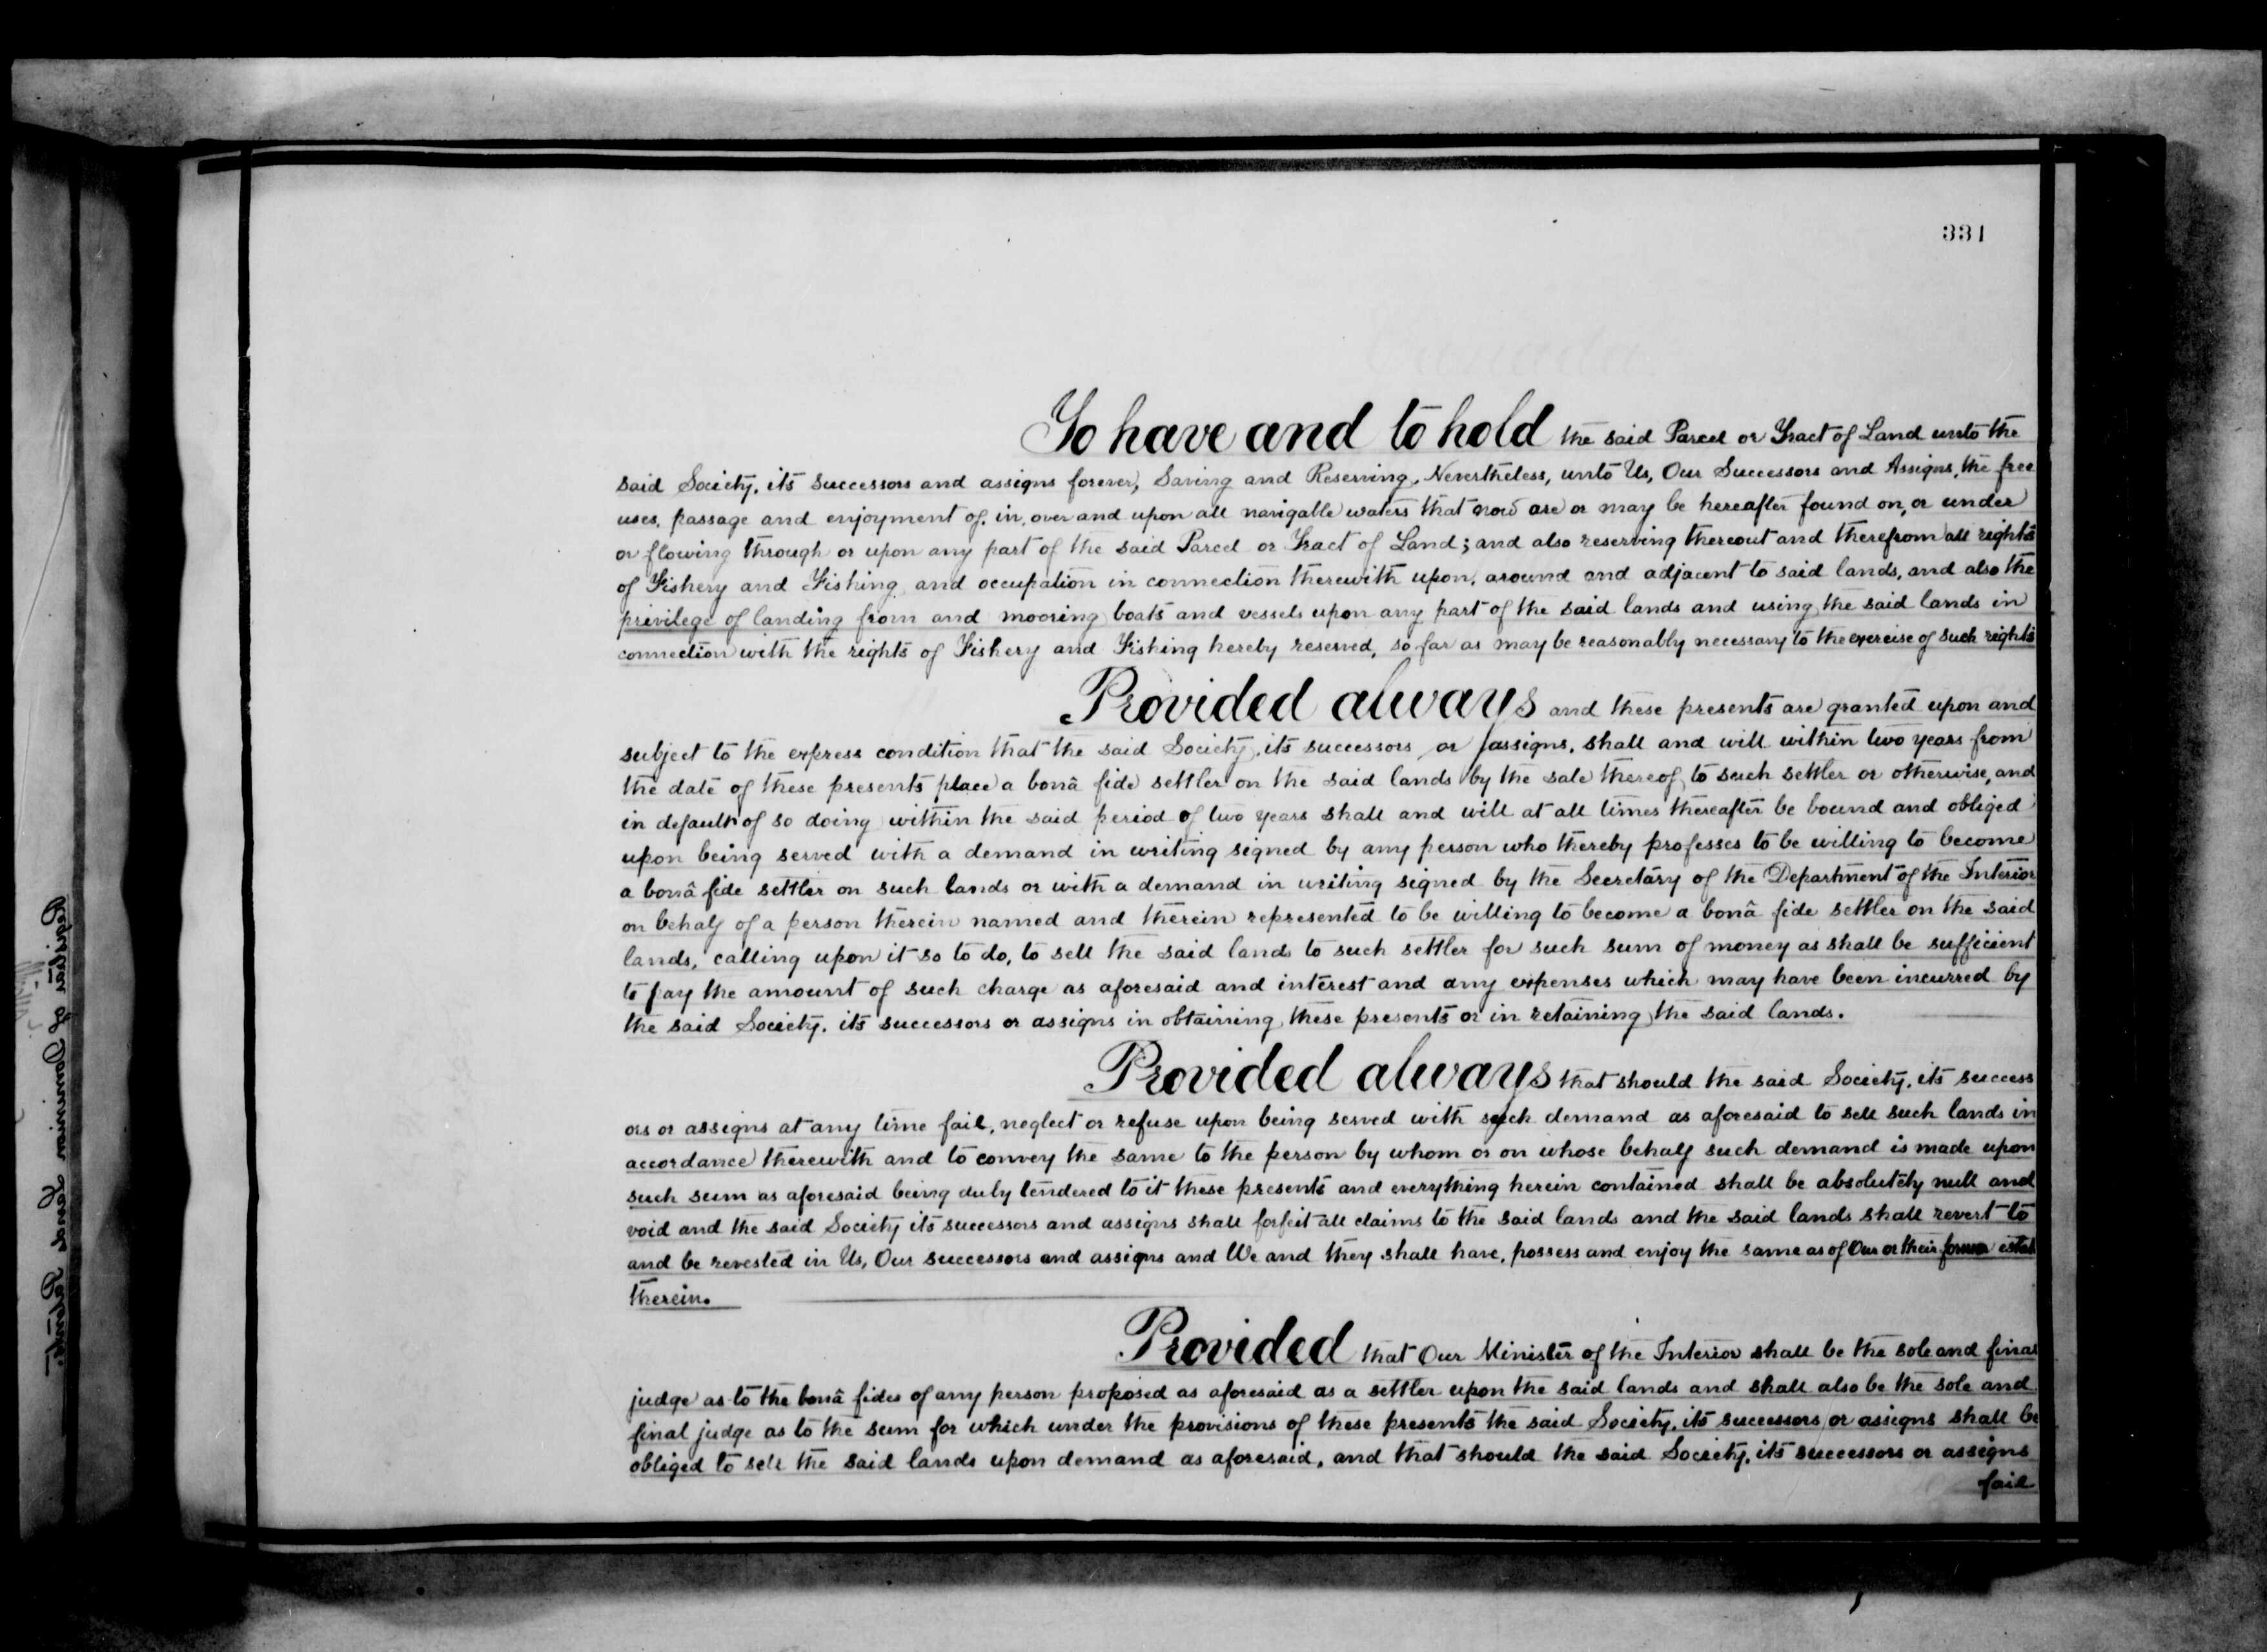 331
To have and to hold the said Parcel or Tract of Land unto the
said Society, its successors and assigns forever, Saving and Reserving, Nevertheless, unto Us, Our Successors and Assigns, the free
uses, passage and enjoyment of, in, over and upon all navigable waters that now are or may be hereafter found on, or under
or flowing through or upon any part of the said Parcel or Tract of Land; and also reserving thereout and therefrom all rights
of Fishery and Fishing and occupation in connection therewith upon, around and adjacent to said lands, and also the
privilege of landing from and mooring boats and vessels upon any part of the said lands and using the said lands in
connection with the rights of Fishery and Fishing hereby reserved, so far as may be reasonably necessary to the exercise of such rights
Provided always and these presents are granted upon and
subject to the express condition that the said Society, its successors or assigns, shall and will within two years from
the date of these presents place a bonâ fide settler on the said lands by the sale thereof to such settler or otherwise, and
in default of so doing within the said period of two years shall and will at all times thereafter be bound and obliged
upon being served with a demand in writing signed by any person who thereby professes to be willing to become
a bonâ fide settler on such lands or with a demand in writing signed by the Secretary of the Department of the Interior
on behalf of a person therein named and therein represented to be willing to become a bonâ fide settler on the said
lands, calling upon it so to do, to sell the said lands to such settler for such sum of money as shall be sufficient
to pay the amount of such charge as aforesaid and interest and any expenses which may have been incurred by
the said Society, its successors or assigns in obtaining these presents or in retaining the said lands.
Provided always that should the said Society, its success
ors or assigns at any time fail, neglect or refuse upon being served with such demand as aforesaid to sell such lands in
accordance therewith and to convey the same to the person by whom or on whose behalf such demand is made upon
such sum as aforesaid being duly tendered to it these presents and everything herein contained shall be absolutely null and
void and the said Society its successors and assigns shall forfeit all claims to the said lands and the said lands shall revert to
and be revested in Us, Our successors and assigns and We and they shall have, possess and enjoy the same as of Our or their former estate
therein.
Provided that Our Minister of the Interior shall be the sole and final
judge as to the bonâ fides of any person proposed as aforesaid as a settler upon the said lands and shall also be the sole and
final judge as to the sum for which under the provisions of these presents the said Society, its successors or assigns shall be
obliged to sell the said lands upon demand as aforesaid, and that should the said Society, its successors or assigns
fail
Registrar of Dominion Lands Patents.